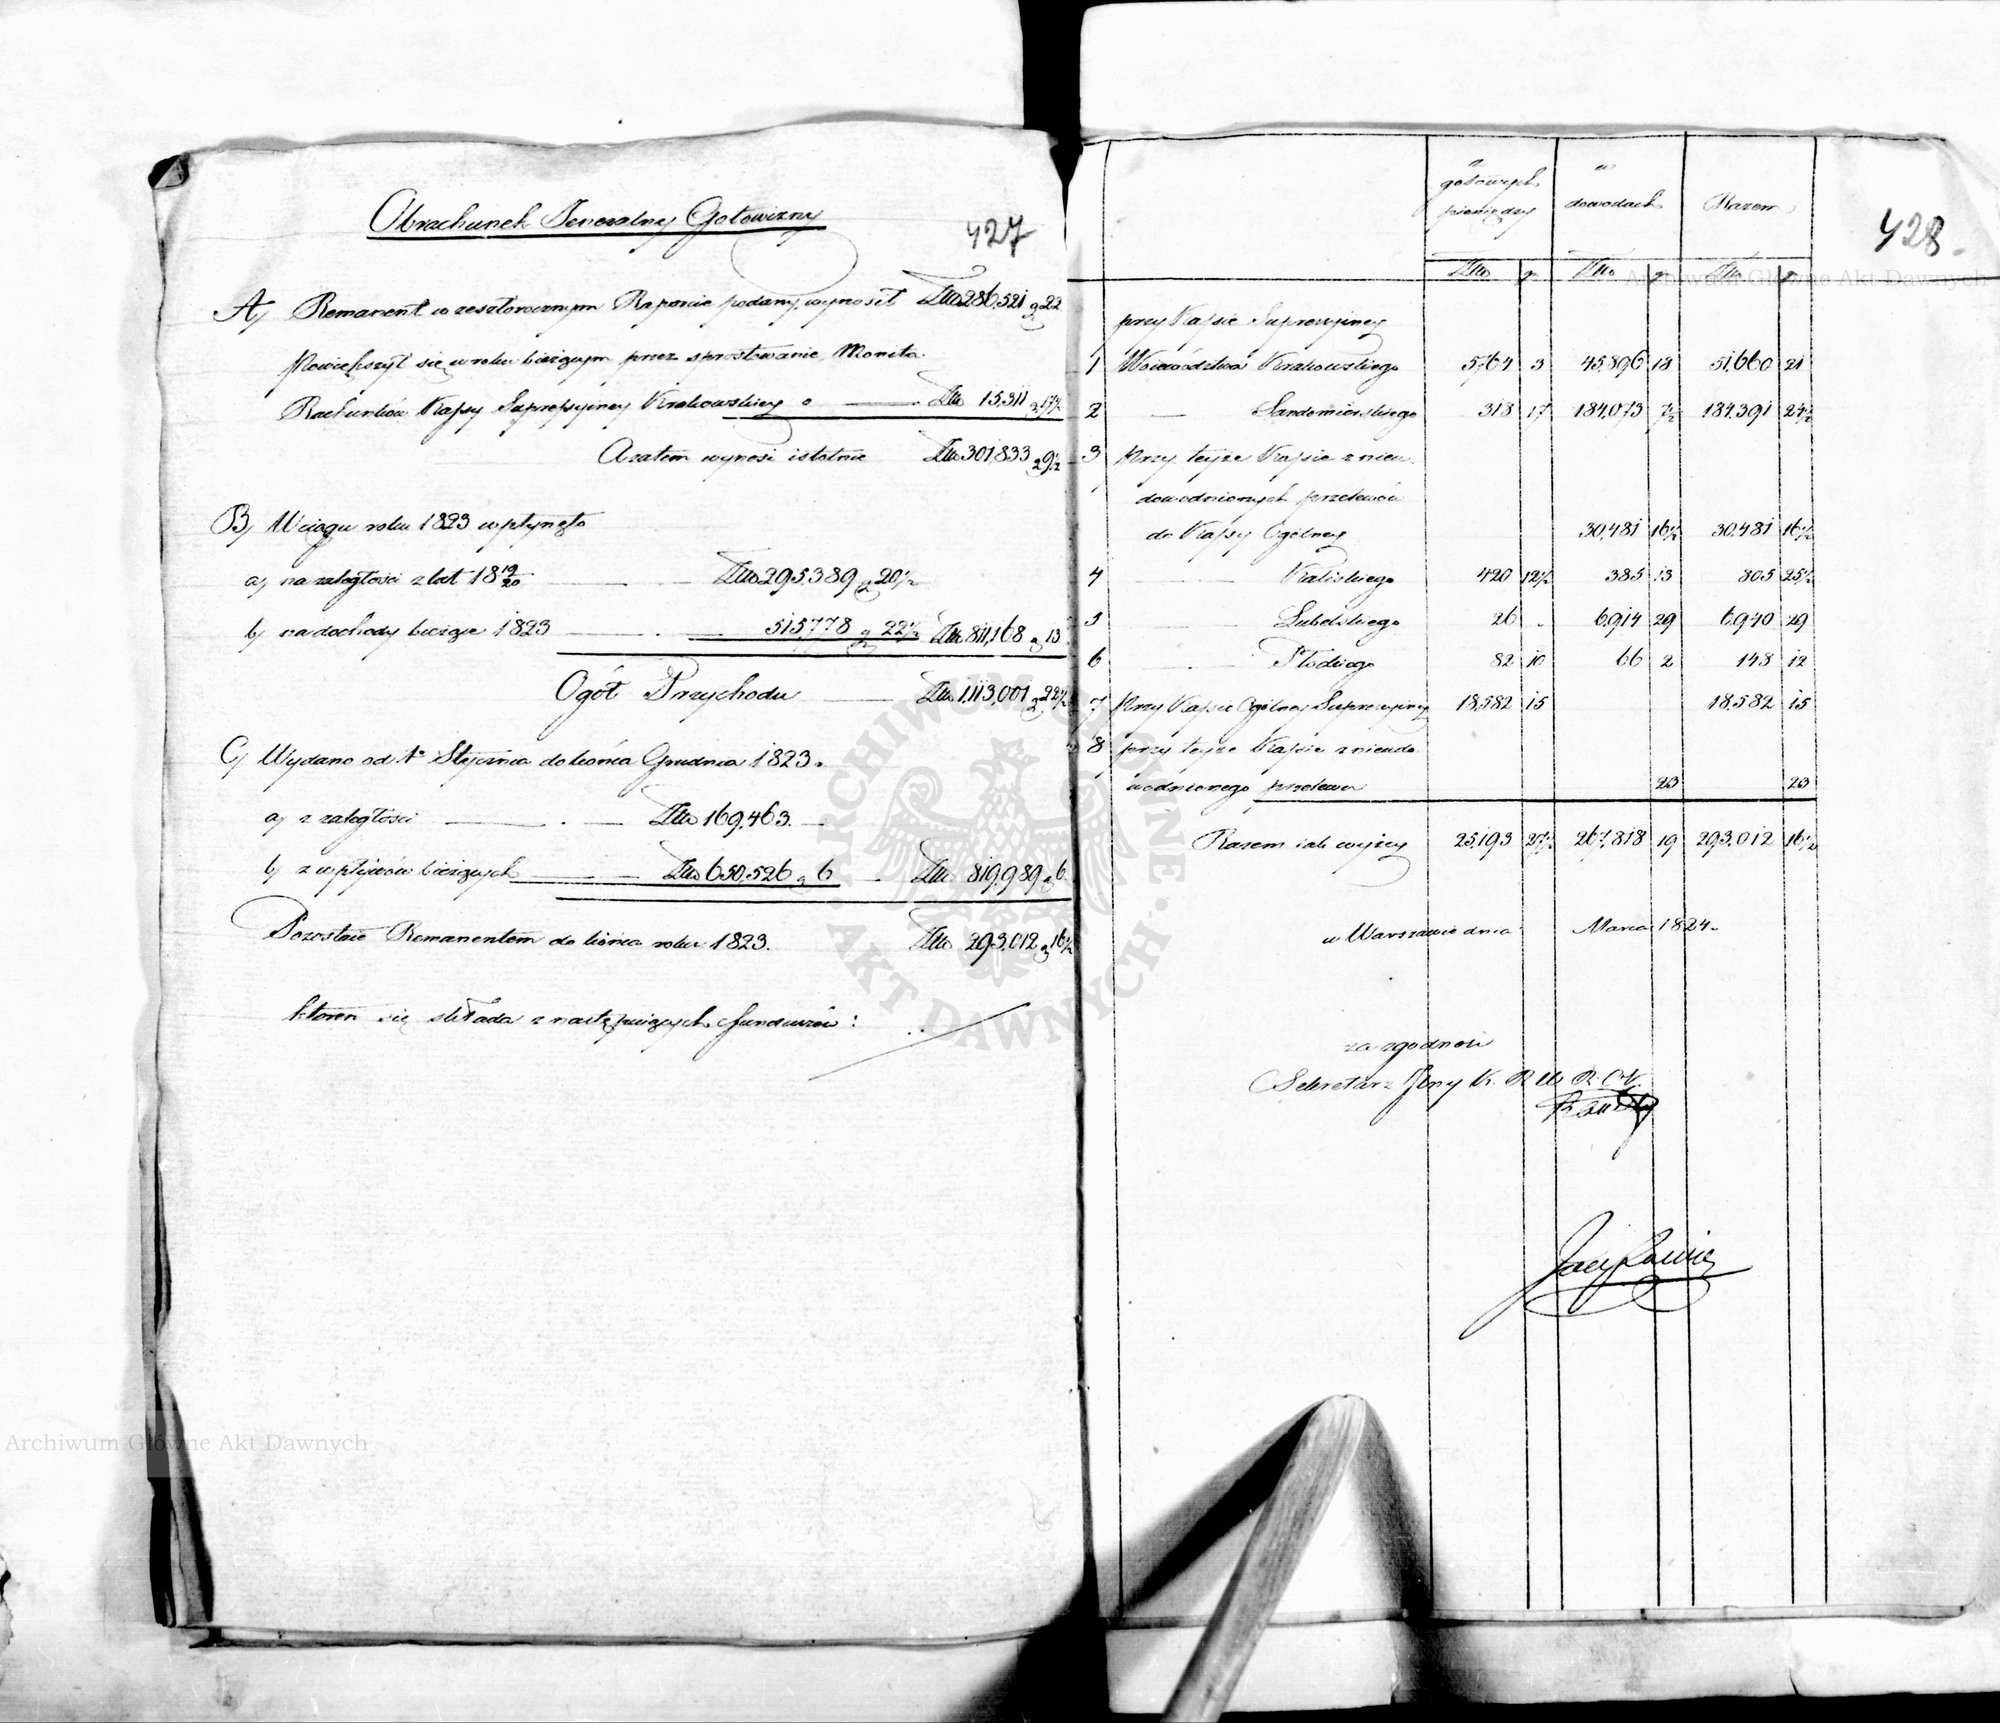 427
Obrachunek Jeneralny Gotowizny
A, Remanent w zeszłorocznym Raporcie podany, wynosił Złłt 286,521 g 22
Powiększył się w roku bieżącym przez sprostowanie Monita
Rachunków Kassy Suppressyiney Krakowskiey o — Złłt 15,311 g 17½
A zatem wynosi istotnie Złłt 301,833 g 9½
B, W ciągu roku 1823 wpłynęło
a, na zaległości z lat 18 19/20 — Złłt 295,389 g 20½
b, na dochody bieżące 1823 — 515,778 g 22½ Złłt 811,168 g 13
Ogół Przychodu — Złłt 1,113,001 g 22½
C, Wydano od 1o Stycznia do końca Grudnia 1823.
a, z zaległości — Złłt 169,463. —
b, z wpływów bieżących — Złłt 650,526 g 6 Złłt 819,989 g 6
Pozostaie Remanentem do końca roku 1823. Złłt 293,012 g 16½
któren się składa z następuiących funduszów:
428
w gotowych pieniędzy w dowodach Razem
Złłt g Złłt g Złłt g
przy Kassie Supressyiney
1 Województwa Krakowskiego 5,764 3 45,896 18 51,660 21
2 — Sandomierskiego 318 17 184,073 7½ 184,391 24½
3 Przy teyże Kassie z nieu-
dowodnionych przelewów
do Kassy Ogólney 30,481 16½ 30,481 16½
4 — Kaliskiego 420 12½ 385 13 805 25½
5 — Lubelskiego 26 - 6,914 29 6,940 29
6 — Płockiego 82 10 66 2 148 12
7 Przy Kassie Ogólney Supressyiney 18,582 15 18,582 15
8 przy teyże Kassie z nieudo
wodnionego przelewu 23 23
Razem iak wyżey 25,193 27½ 267,818 19 293,012 16½
w Warszawie dnia Marca 1824.
za zgodność
Sekretarz Jlny K. R. W. R. O.
Archiwum Główne Akt Dawnych
Archiwum Główne Akt Dawnych
ARCHIWUM GŁÓWNE AKT DAWNYCH